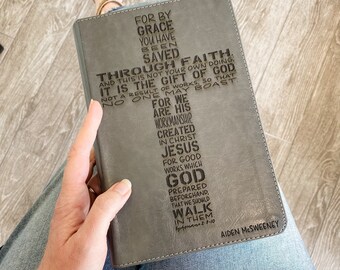 FOR BY
GRACE
YOU HAVE
BEEN
SAVED
THROUGH FAITH,
AND THIS IS NOT YOUR OWN DOING
IT IS THE GIFT OF GOD
NOT A RESULT OF WORKS SO THAT
NO ONE MAY BOAST
FOR WE
ARE HIS
WORKMANSHIP
CREATED
IN CHRIST
JESUS
FOR GOOD
WORKS WHICH
GOD
PREPARED
BEFOREHAND,
THAT WE SHOULD
WALK
IN THEM
AIDEN McSWEENEY